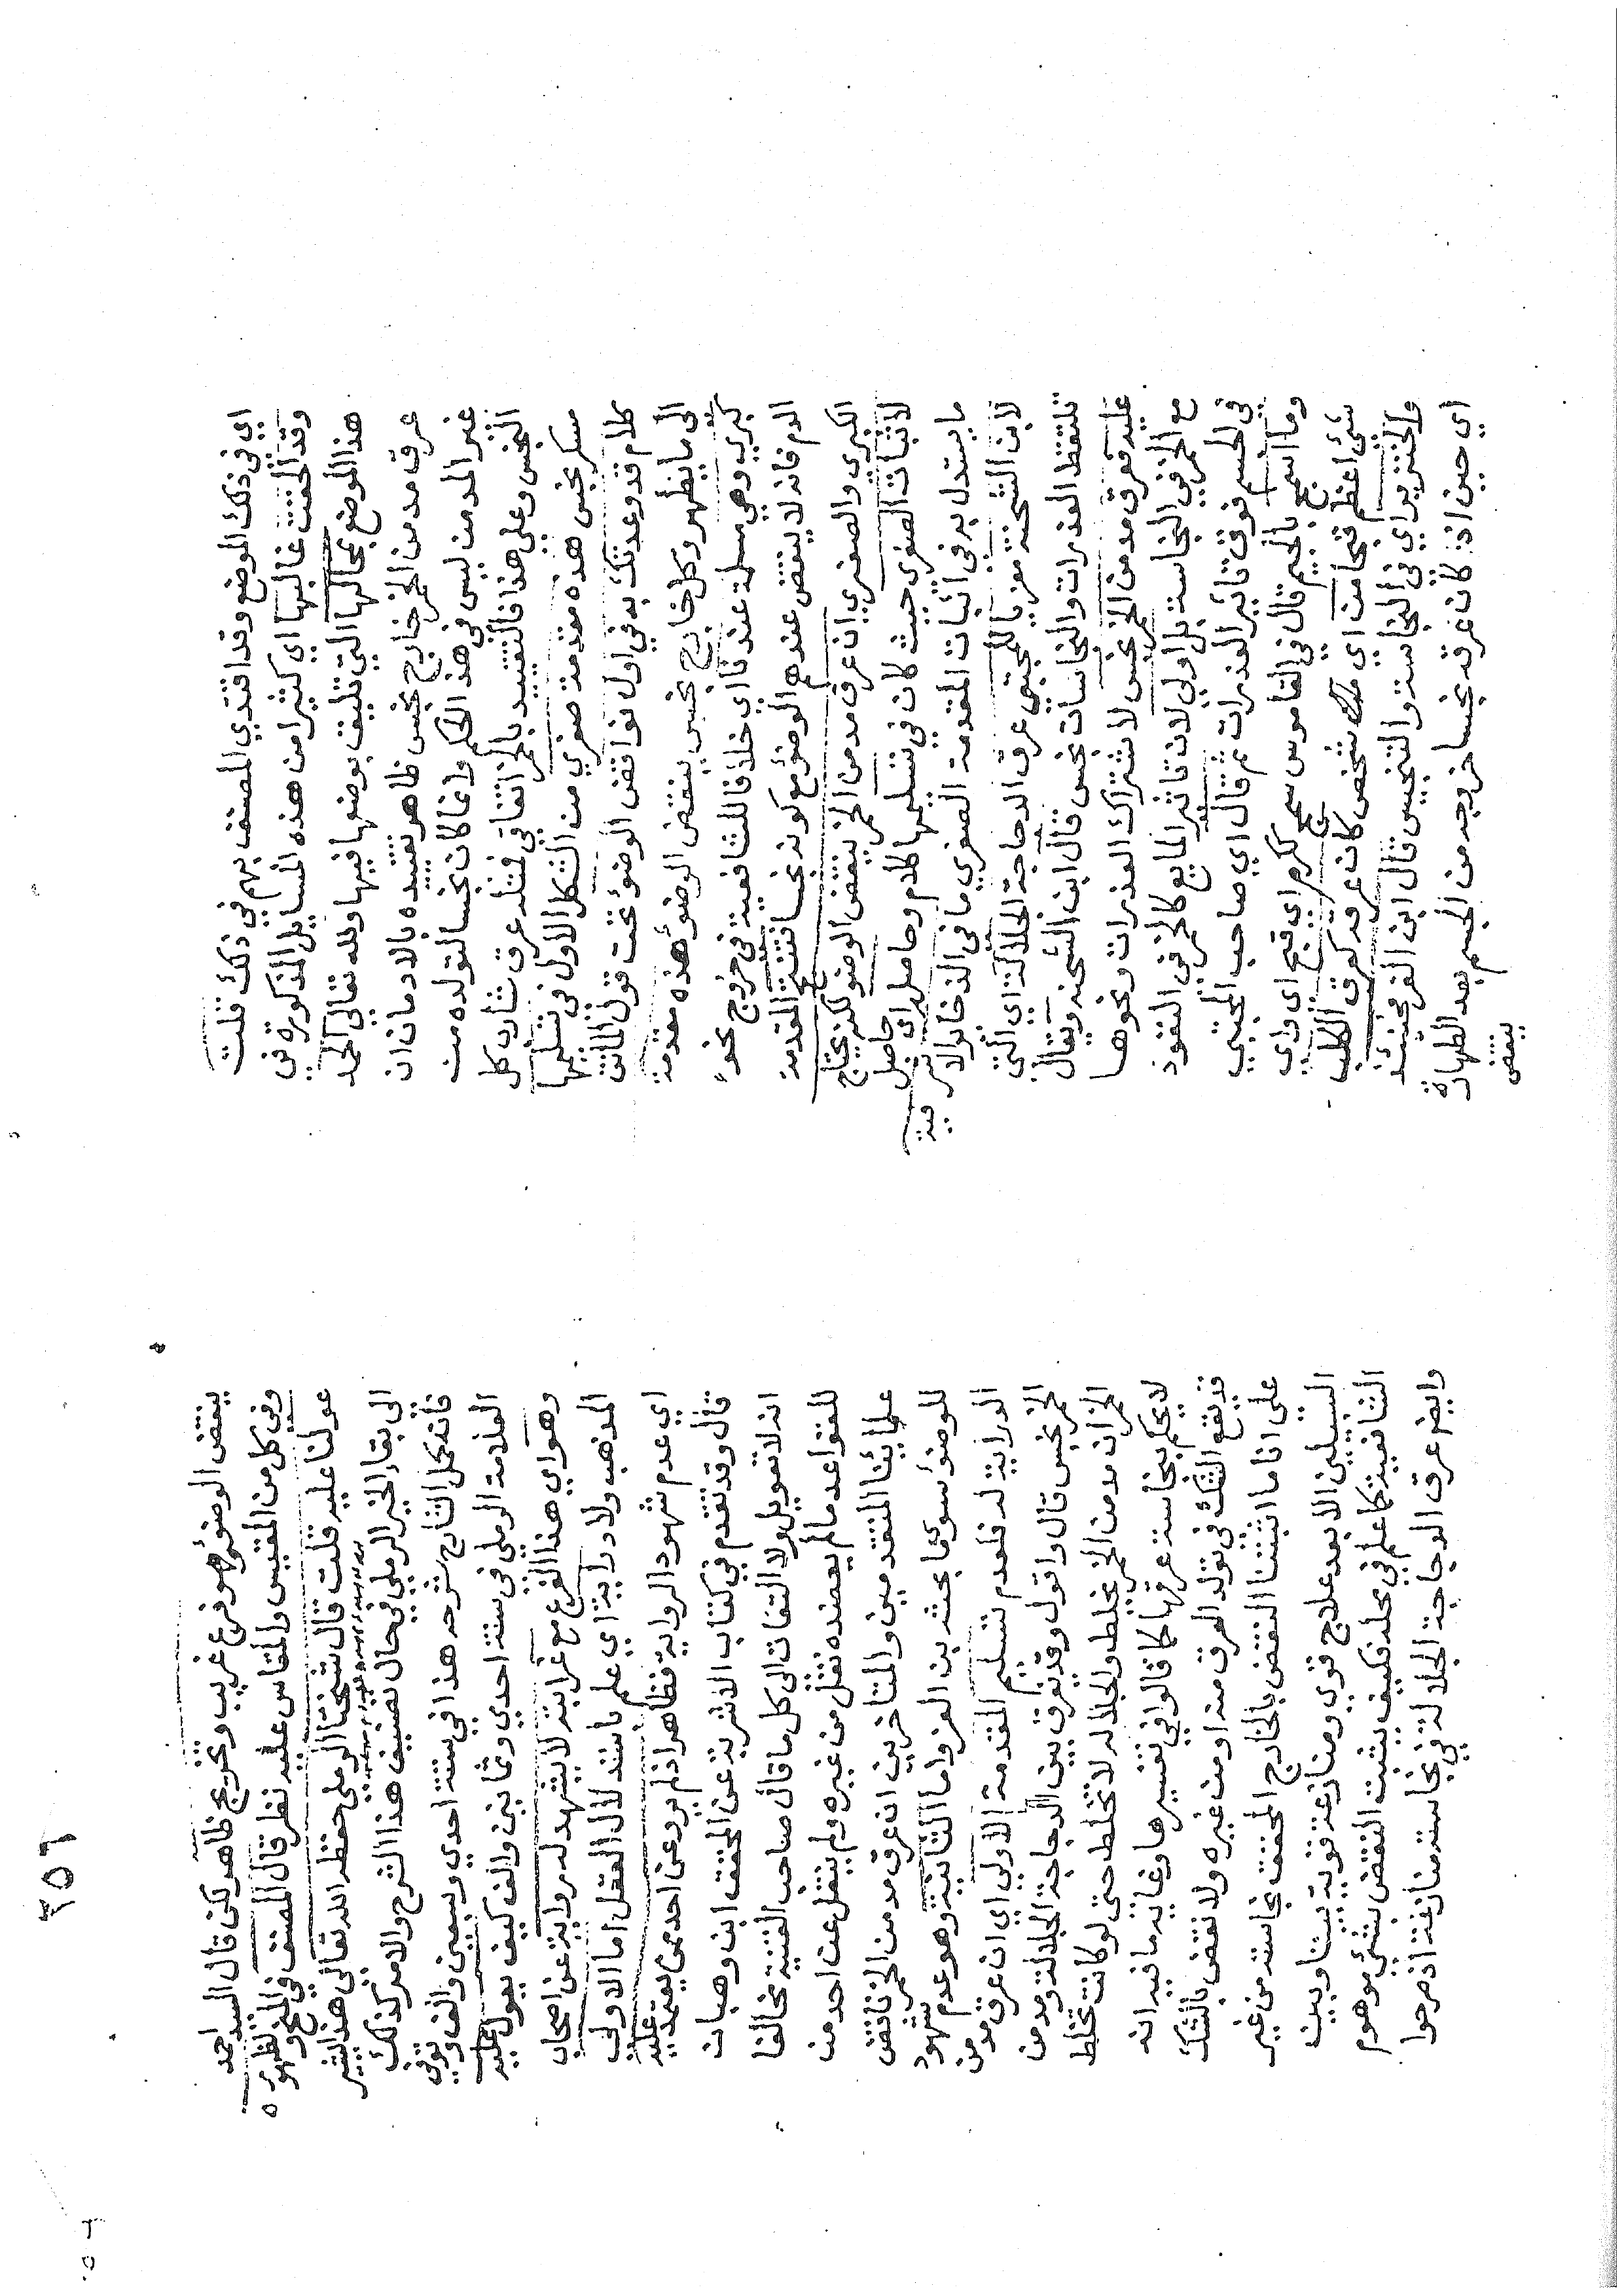 اي في ذلك الموضع وقد اقتدي المصنف بهم في ذلك قلت
وقد الحقت غالبها اي كثيرا من هذه المسايل المذكورة في
هذا الموضع بمحالها التي تليق بوضعها فيها ولله تعالى الحمد
عرق مدمن الخمر خارج نجس ظاهر تقييده بالادمان ان
غير المدمن ليس في هذا الحكم وانما كان نجسا لتولده من
النجس وعلى هذا فالتقييد بالخمر اتفاقي فمثله عرق شارب كل
مسكر نجس هذه مقدمة صغري من الشكل الاول في تسليمها
كلام قد وعدتك به في اول نواقض الوضوء تحت قول الماتن
الى ما يظهر وكل خارج نجس ينقض الوضوء هذه مقدمة
كبري وهي مسلمة عندنا اي خلافا للشافعية في خروج نحو
الدم فانه لا ينقض عندهم الوضوء مع كونه نجسا نتيجة المقدمة
الكبري والصغري ان عرق مدمن الخمر ينقض الوضو لكن يحتاج
لاثبات الصغرى حيث كان في تسليمها كلام وحاصل اي حاصل
ما يستدل به في اثبات المقدمة الصغري ما في الذخاير الاشرفية
لابن الشحنة معزيا للمجتبى عرق الدجاجة الجلالة اي التي
تلتقط العذرات والنجاسات نجس قال ابن الشحنة ويقال
عليه فعرق مدمن الخمر نجس لاشتراك العذرات ونحوها
مع الخمر في النجاسة بل اولى لان تاثير المايع كالخمر في النفوذ
في الجسم فوق تاثير العذرات ثم قال اي صاحب المجتبي
وما اسمج بالجيم قال في القاموس سمج ككرم اي قبح اي واي
شئ اعظم قبحا من اي شخص كان عرقه كعرق الكلب
والخنزير اي في النجاسة والتنجيس قال ابن العز فحينئذ
اي حين اذ كان عرقه نجسا خروجه من الجسم بعد الطهارة
ينقض
ينقض الوضوء وهو فرع غريب وتخريج ظاهر لكن قال السيد احمد
وفي كل من المقيس والمقاس عليه نظر قال المصنف في المنح ولظهوره
عولنا عليه قلت قال شيخنا الرملي حفظه الله تعالى هذا يشير
الى بقاء الخير الرملي في حال تصنيف هذا الشرح والامر كذلك
فانه كمل الشارح شرحه هذا في سنة احدي وسبعين والف وتوفي
العلامة الرملي في سنة احدي وثمانين والف كيف يعول عليه
وهو اي هذا الفرع مع غرابته لا يشهد له رواية عن اصحاب
المذهب ولا دراية اي علم باستدلال العقل اما الاولى
اي عدم شهود الرواية فظاهر اذ لم يرو عن احد ممن يعتمد عليه
قال وقد تقدم في كتاب الاشربة عن المحقق ابن وهبان
انه لا تعويل ولا التفات الى كل ما قال صاحب القنية مخالفا
للقواعد ما لم يعضده نقل من غيره ولم ينقل عن احد من
علمائنا المتقدمين والمتاخرين ان عرق مدمن الخمر ناقض
للوضوء سوى ما بحثه ابن العز واما الثانية وهو عدم شهود
الدراية له فلعدم تسليم المقدمة الاولى اي ان عرق مدمن
الخمر نجس قال واقول وقد يفرق بين الدجاجة الجلالة ومدمن
الخمر ان مدمن الخمر يخلط والجلالة لا تخلط حتى لو كانت تخلط
لا يحكم بنجاسة عرقها كما قالوا في تفسيرها وغاية ما فيه انه
قد يقع الشك في تولد العرق منه او من غيره ولا نقض بالشك
على انا ما اثبتنا النقض بالخارج المحقق نجاسته من غير
السبيلين الا بعد علاج قوي ومنازعة قوية بيننا وبين
الشافعية كما علم في محله فكيف يثبت النقض بشئ موهوم
وايضا عرق الدجاجة الجلالة في نجاسته منازعة اذ صرحوا
٣٥٦